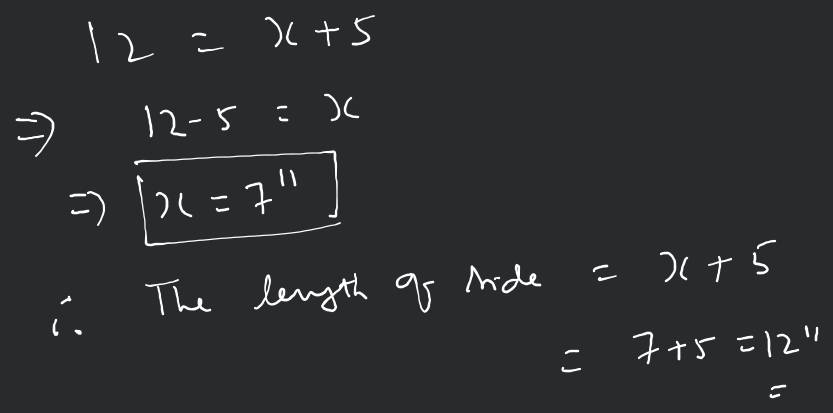 12 = x+5
⇒ 12-5 = x
⇒ x = 7"
∴ The length of side = x+5
= 7+5 = 12"
=